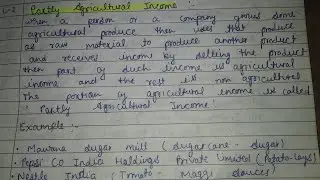 Partly Agricultural Income
When a person or a company grows some
agricultural produce then uses that produce
as raw material to produce another product
and receives income by selling the product
then part of such income is agricultural
income and the rest is non agricultural
The portion of agricultural income is called
Partly Agricultural Income
Example :-
• Mawana sugar mill (sugarcane - sugar)
• Pepsi Co India Holdings Private Limited (Potato - lays)
• Nestle India (Tomato - Maggi Sauces)